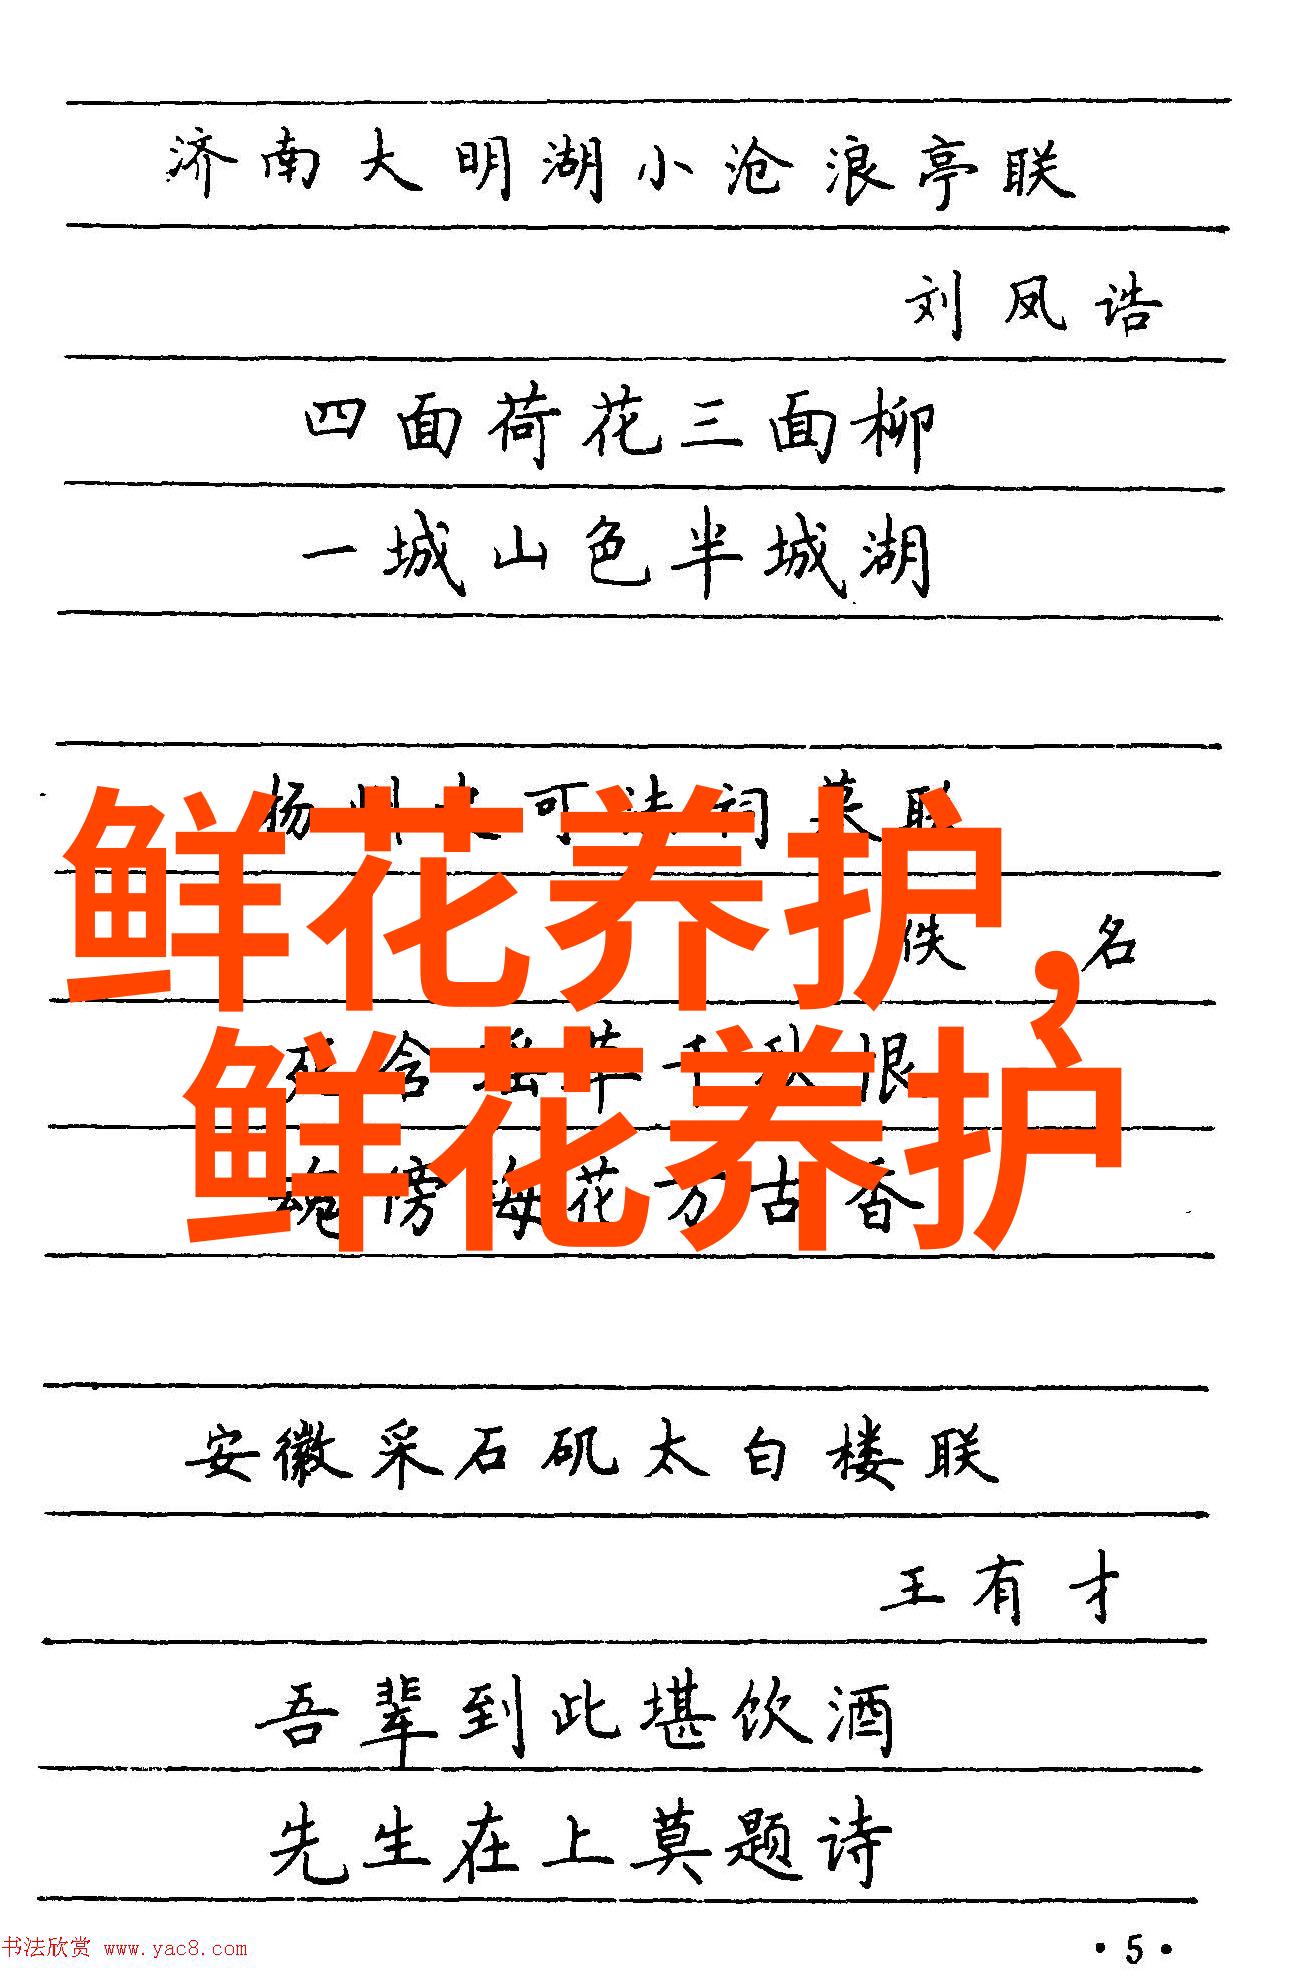 济南大明湖小沧浪亭联
刘凤诰
四面荷花三面柳
一城山色半城湖
扬州史可法祠墓联
鲜花养护，
佚名
含 千秋恨
鲜花养护
魂傍梅花万古香
安徽采石矶太白楼联
王有才
吾辈到此堪饮酒
先生在上莫题诗
书法欣赏 www.yac8.com
·5·